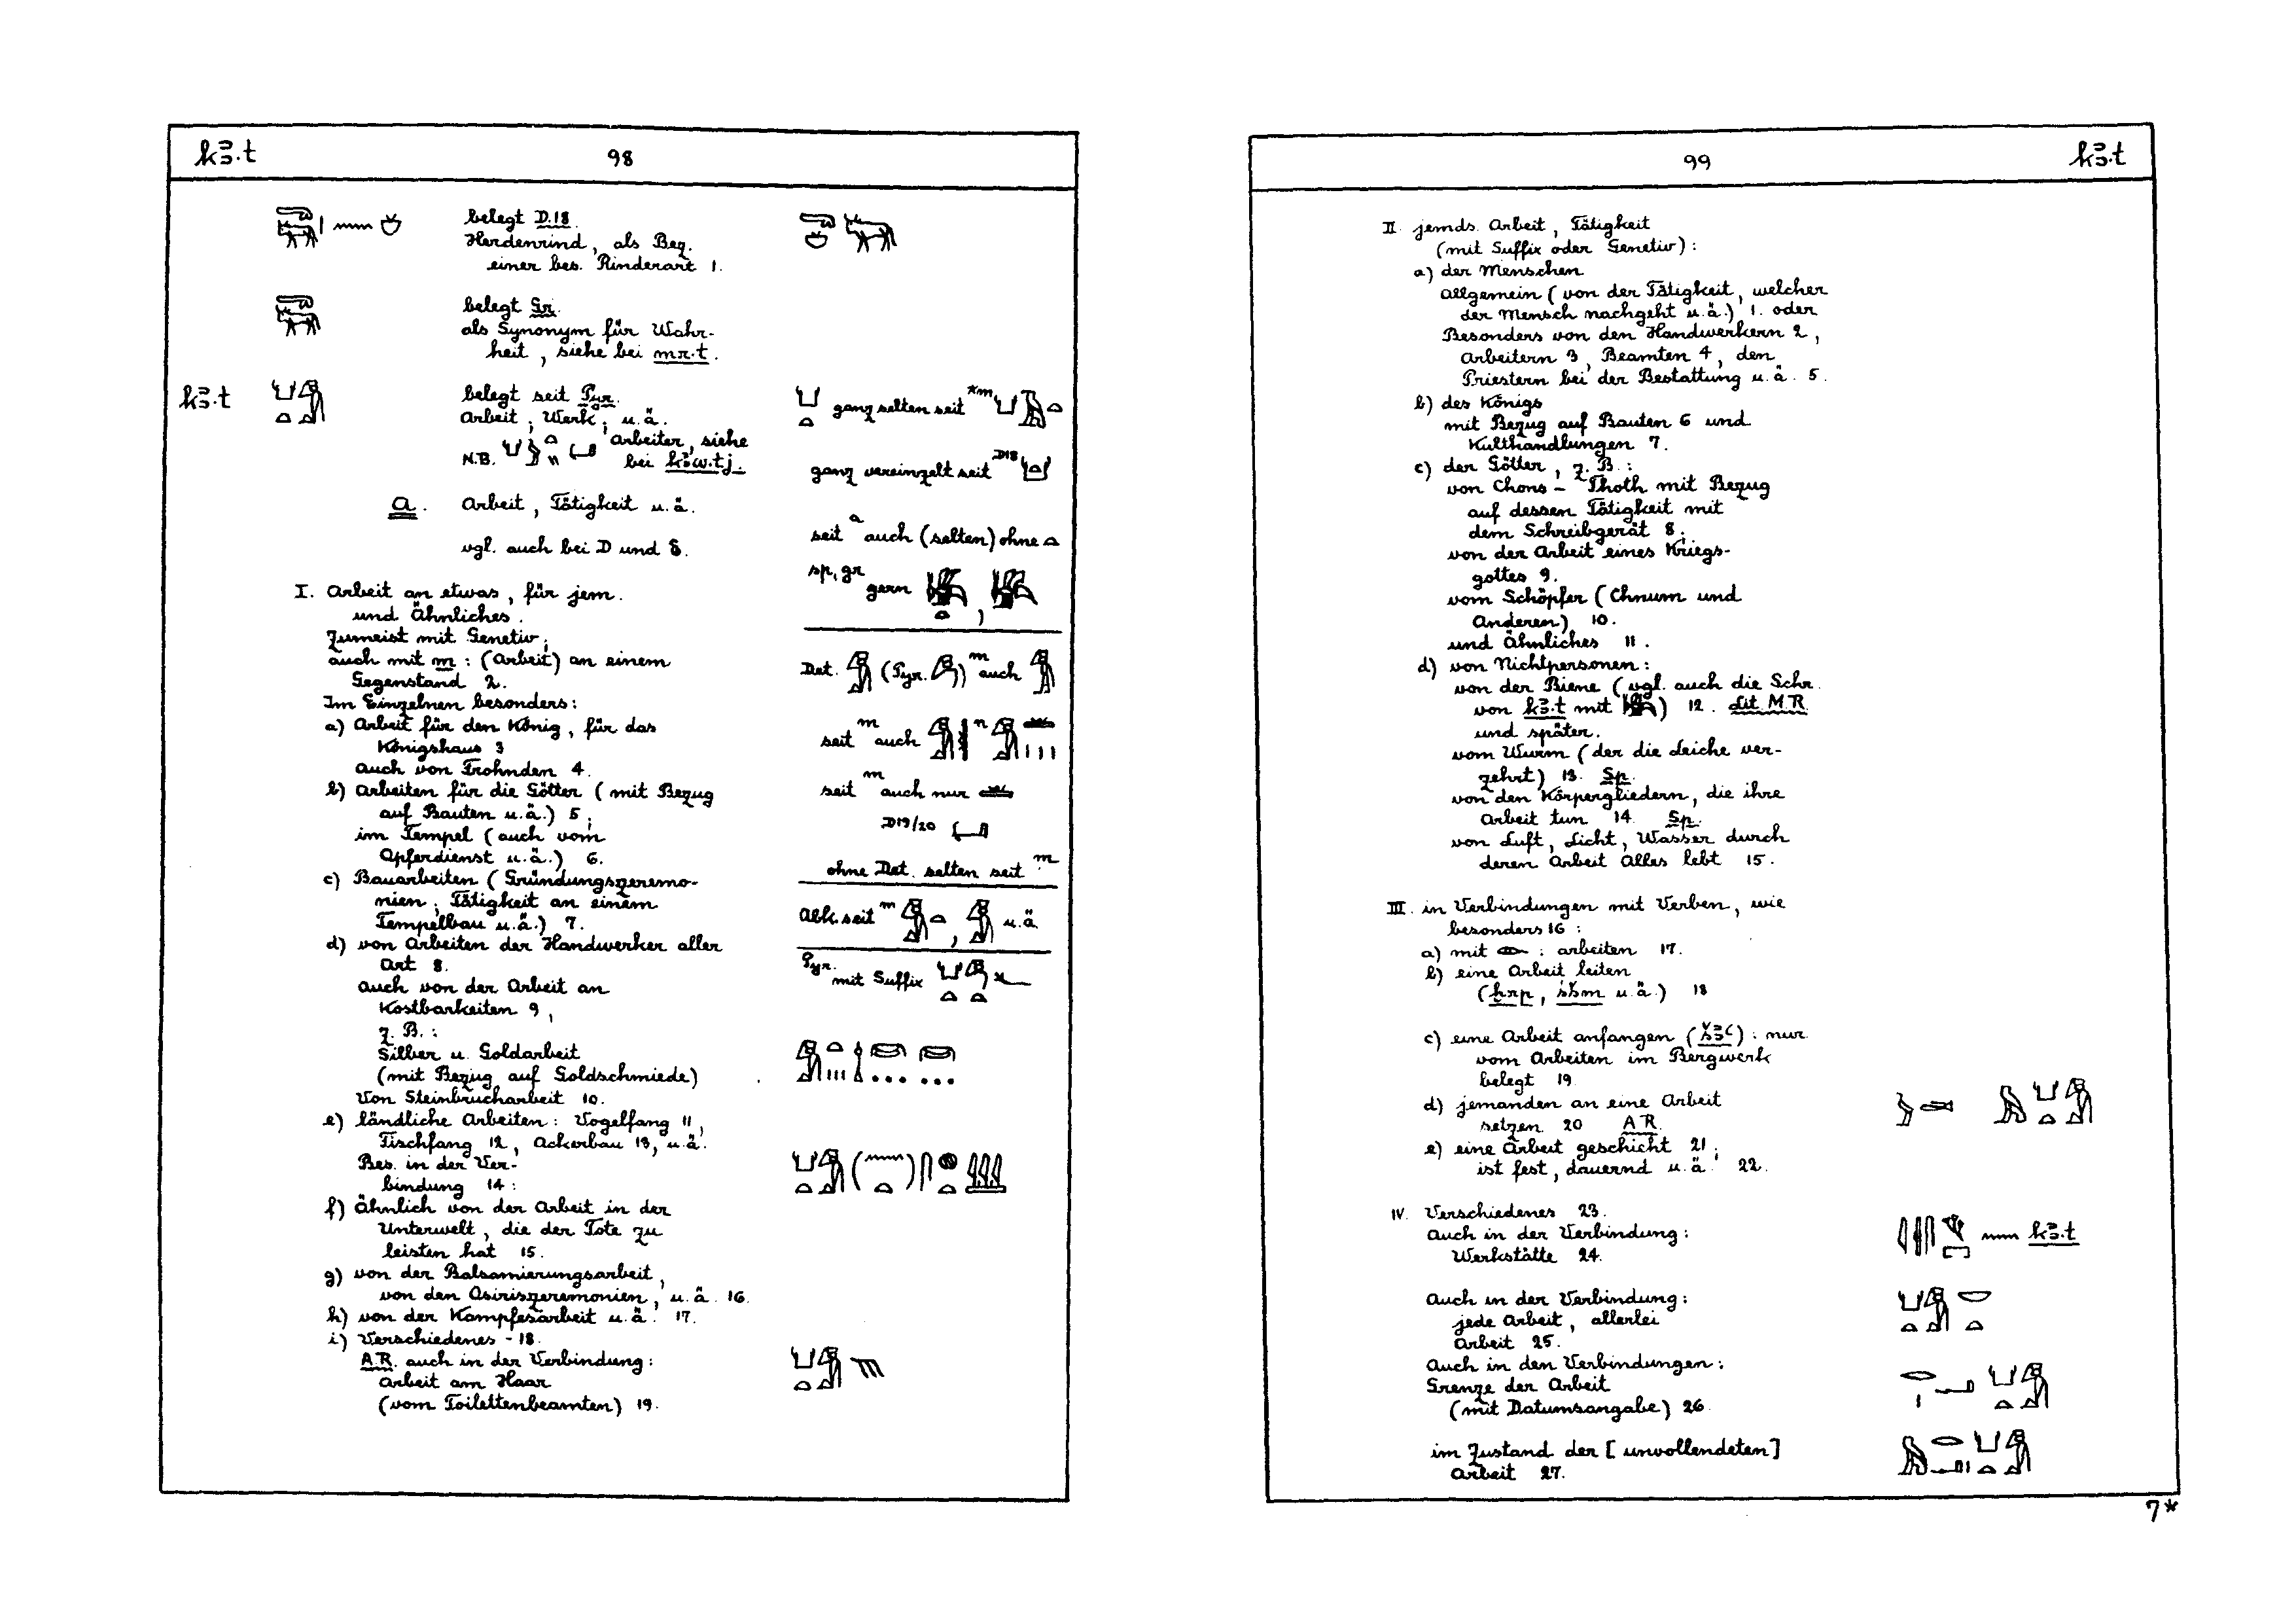 kꜣ.t 98
belegt D.18.
Herdenrind, als Bez.
einer bes. Rinderart 1.
belegt Gr.
als Synonym für Wahr-
heit, siehe bei mr.t.
kꜣ.t
belegt seit Pyr.
Arbeit; Werk; u.ä.
N.B. Arbeiter, siehe
bei kꜣw.tj.
a. Arbeit, Tätigkeit u.ä.
vgl. auch bei D und δ.
I. Arbeit an etwas, für jem.
und Ähnliches.
Zumeist mit Genetiv;
auch mit m : (Arbeit) an einem
Gegenstand 2.
Im Einzelnen besonders:
a) Arbeit für den König, für das
Königshaus 3
auch von Frohnden 4.
b) Arbeiten für die Götter (mit Bezug
auf Bauten u.ä.) 5;
im Tempel (auch vom
Opferdienst u.ä.) 6.
c) Bauarbeiten (Gründungszeremo-
nien; Tätigkeit an einem
Tempelbau u.ä.) 7.
d) von Arbeiten der Handwerker aller
Art 8.
auch von der Arbeit an
Kostbarkeiten 9,
z. B.:
Silber u. Goldarbeit
(mit Bezug auf Goldschmiede)
Von Steinbrucharbeit 10.
e) ländliche Arbeiten: Vogelfang 11,
Fischfang 12, Ackerbau 13, u.ä.
Bes. in der Ver-
bindung 14:
f) Ähnlich von der Arbeit in der
Unterwelt, die der Tote zu
leisten hat 15.
g) von der Balsamierungsarbeit,
von den Osiriszeremonien, u.ä. 16.
h) von der Kampfesarbeit u.ä. 17.
i) Verschiedenes - 18.
A.R. auch in der Verbindung:
Arbeit am Haar
(vom Toilettenbeamten) 19.
ganz selten seit
ganz vereinzelt seit D18
seit a auch (selten) ohne
sp, gr gern ,
Det. (Pyr. ) m auch
seit m auch n
seit m auch nur
D19/20
ohne Det. selten seit m
Abk. seit m , u.ä
Pyr. mit Suffix
99 kꜣ.t
II. jemds. Arbeit, Tätigkeit
(mit Suffix oder Genetiv):
a) der Menschen
allgemein (von der Tätigkeit, welcher
der Mensch nachgeht u.ä.) 1. oder
Besonders von den Handwerkern 2,
Arbeitern 3, Beamten 4, den
Priestern bei der Bestattung u.ä. 5.
b) des Königs
mit Bezug auf Bauten 6 und
Kulthandlungen 7.
c) der Götter, z. B.:
von Chons - Thoth mit Bezug
auf dessen Tätigkeit mit
dem Schreibgerät 8;
von der Arbeit eines Kriegs-
gottes 9.
vom Schöpfer (Chnum und
Anderen) 10.
und Ähnliches 11.
d) von Nichtpersonen:
von der Biene (vgl. auch die Schr.
von kꜣ.t mit ) 12. Lit. M.R.
und später.
vom Wurm (der die Leiche ver-
zehrt) 13. Sp.
von den Körpergliedern, die ihre
Arbeit tun 14. Sp.
von Luft, Licht, Wasser durch
deren Arbeit Alles lebt 15.
III. in Verbindungen mit Verben, wie
besonders 16:
a) mit : arbeiten 17.
b) eine Arbeit leiten
(ḫrp, sšm u.ä.) 18
c) eine Arbeit anfangen (šꜣꜥ): nur
vom Arbeiten im Bergwerk
belegt 19
d) jemanden an eine Arbeit
setzen 20 A.R.
e) eine Arbeit geschieht 21;
ist fest, dauernd u.ä. 22.
IV. Verschiedenes 23.
Auch in der Verbindung:
Werkstätte 24.
kꜣ.t
Auch in der Verbindung:
jede Arbeit, allerlei
Arbeit 25.
Auch in den Verbindungen:
Grenze der Arbeit
(mit Datumsangabe) 26.
im Zustand der [unvollendeten]
Arbeit 27.
7*